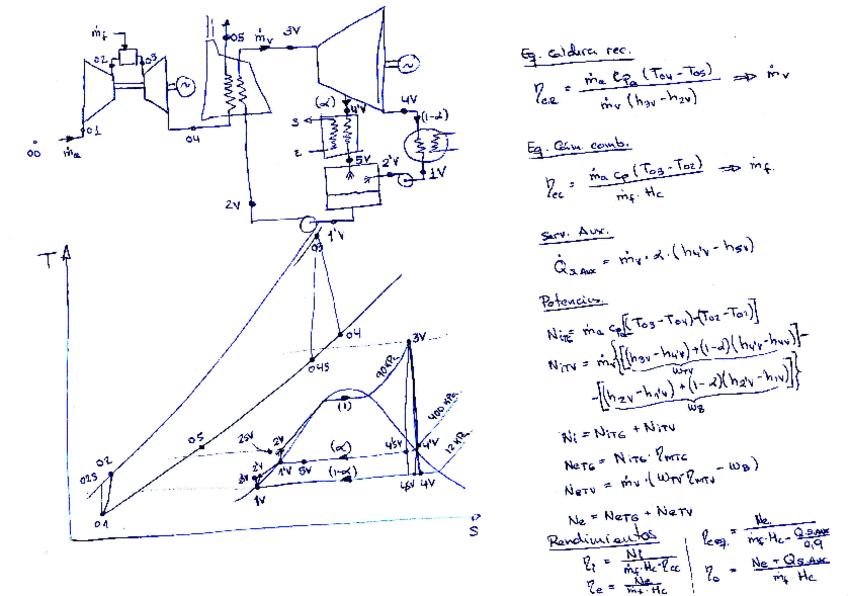 ṁf
02
03
05
ṁv
3V
01
00
ṁa
04
(α)
4'V
4V
(1-α)
3
2
5V
2'V
1V
2V
1'V
T
03
04
04S
3V
90 kPa
400 kPa
12 kPa
(1)
05
2SV
2V
(α)
4'SV
4'V
02
02S
1'V
5V
2'V
(1-α)
1V
4SV
4V
01
S
Eq. Caldera rec.
ηCR = ṁa Cpa (T04 - T05) / ṁv (h3V - h2V) ⇒ ṁv
Eq. Cám. comb.
ηcc = ṁa cp (T03 - T02) / ṁf · Hc ⇒ ṁf.
Serv. Aux.
Q̇S.Aux = ṁv · α · (h4'V - h5V)
Potencias.
NiTG = ṁa cp[(T03 - T04) - (T02 - T01)]
NiTV = ṁv{[(h3V - h4'V) + (1-α)(h4'V - h4V)] -
WTV
- [(h2V - h1'V) + (1-α)(h2'V - h1V)]}
WB
Ni = NiTG + NiTV
NeTG = NiTG · ηMTG
NeTV = ṁv · (WTV ηMTV - WB)
Ne = NeTG + NeTV
Rendimientos
ηi = Ni / ṁf · Hc · ηcc
ηe = Ne / ṁf · Hc
ηeeq = Ne / ṁf · Hc - QS.Aux / 0,9
ηo = Ne + QS.Aux / ṁf Hc